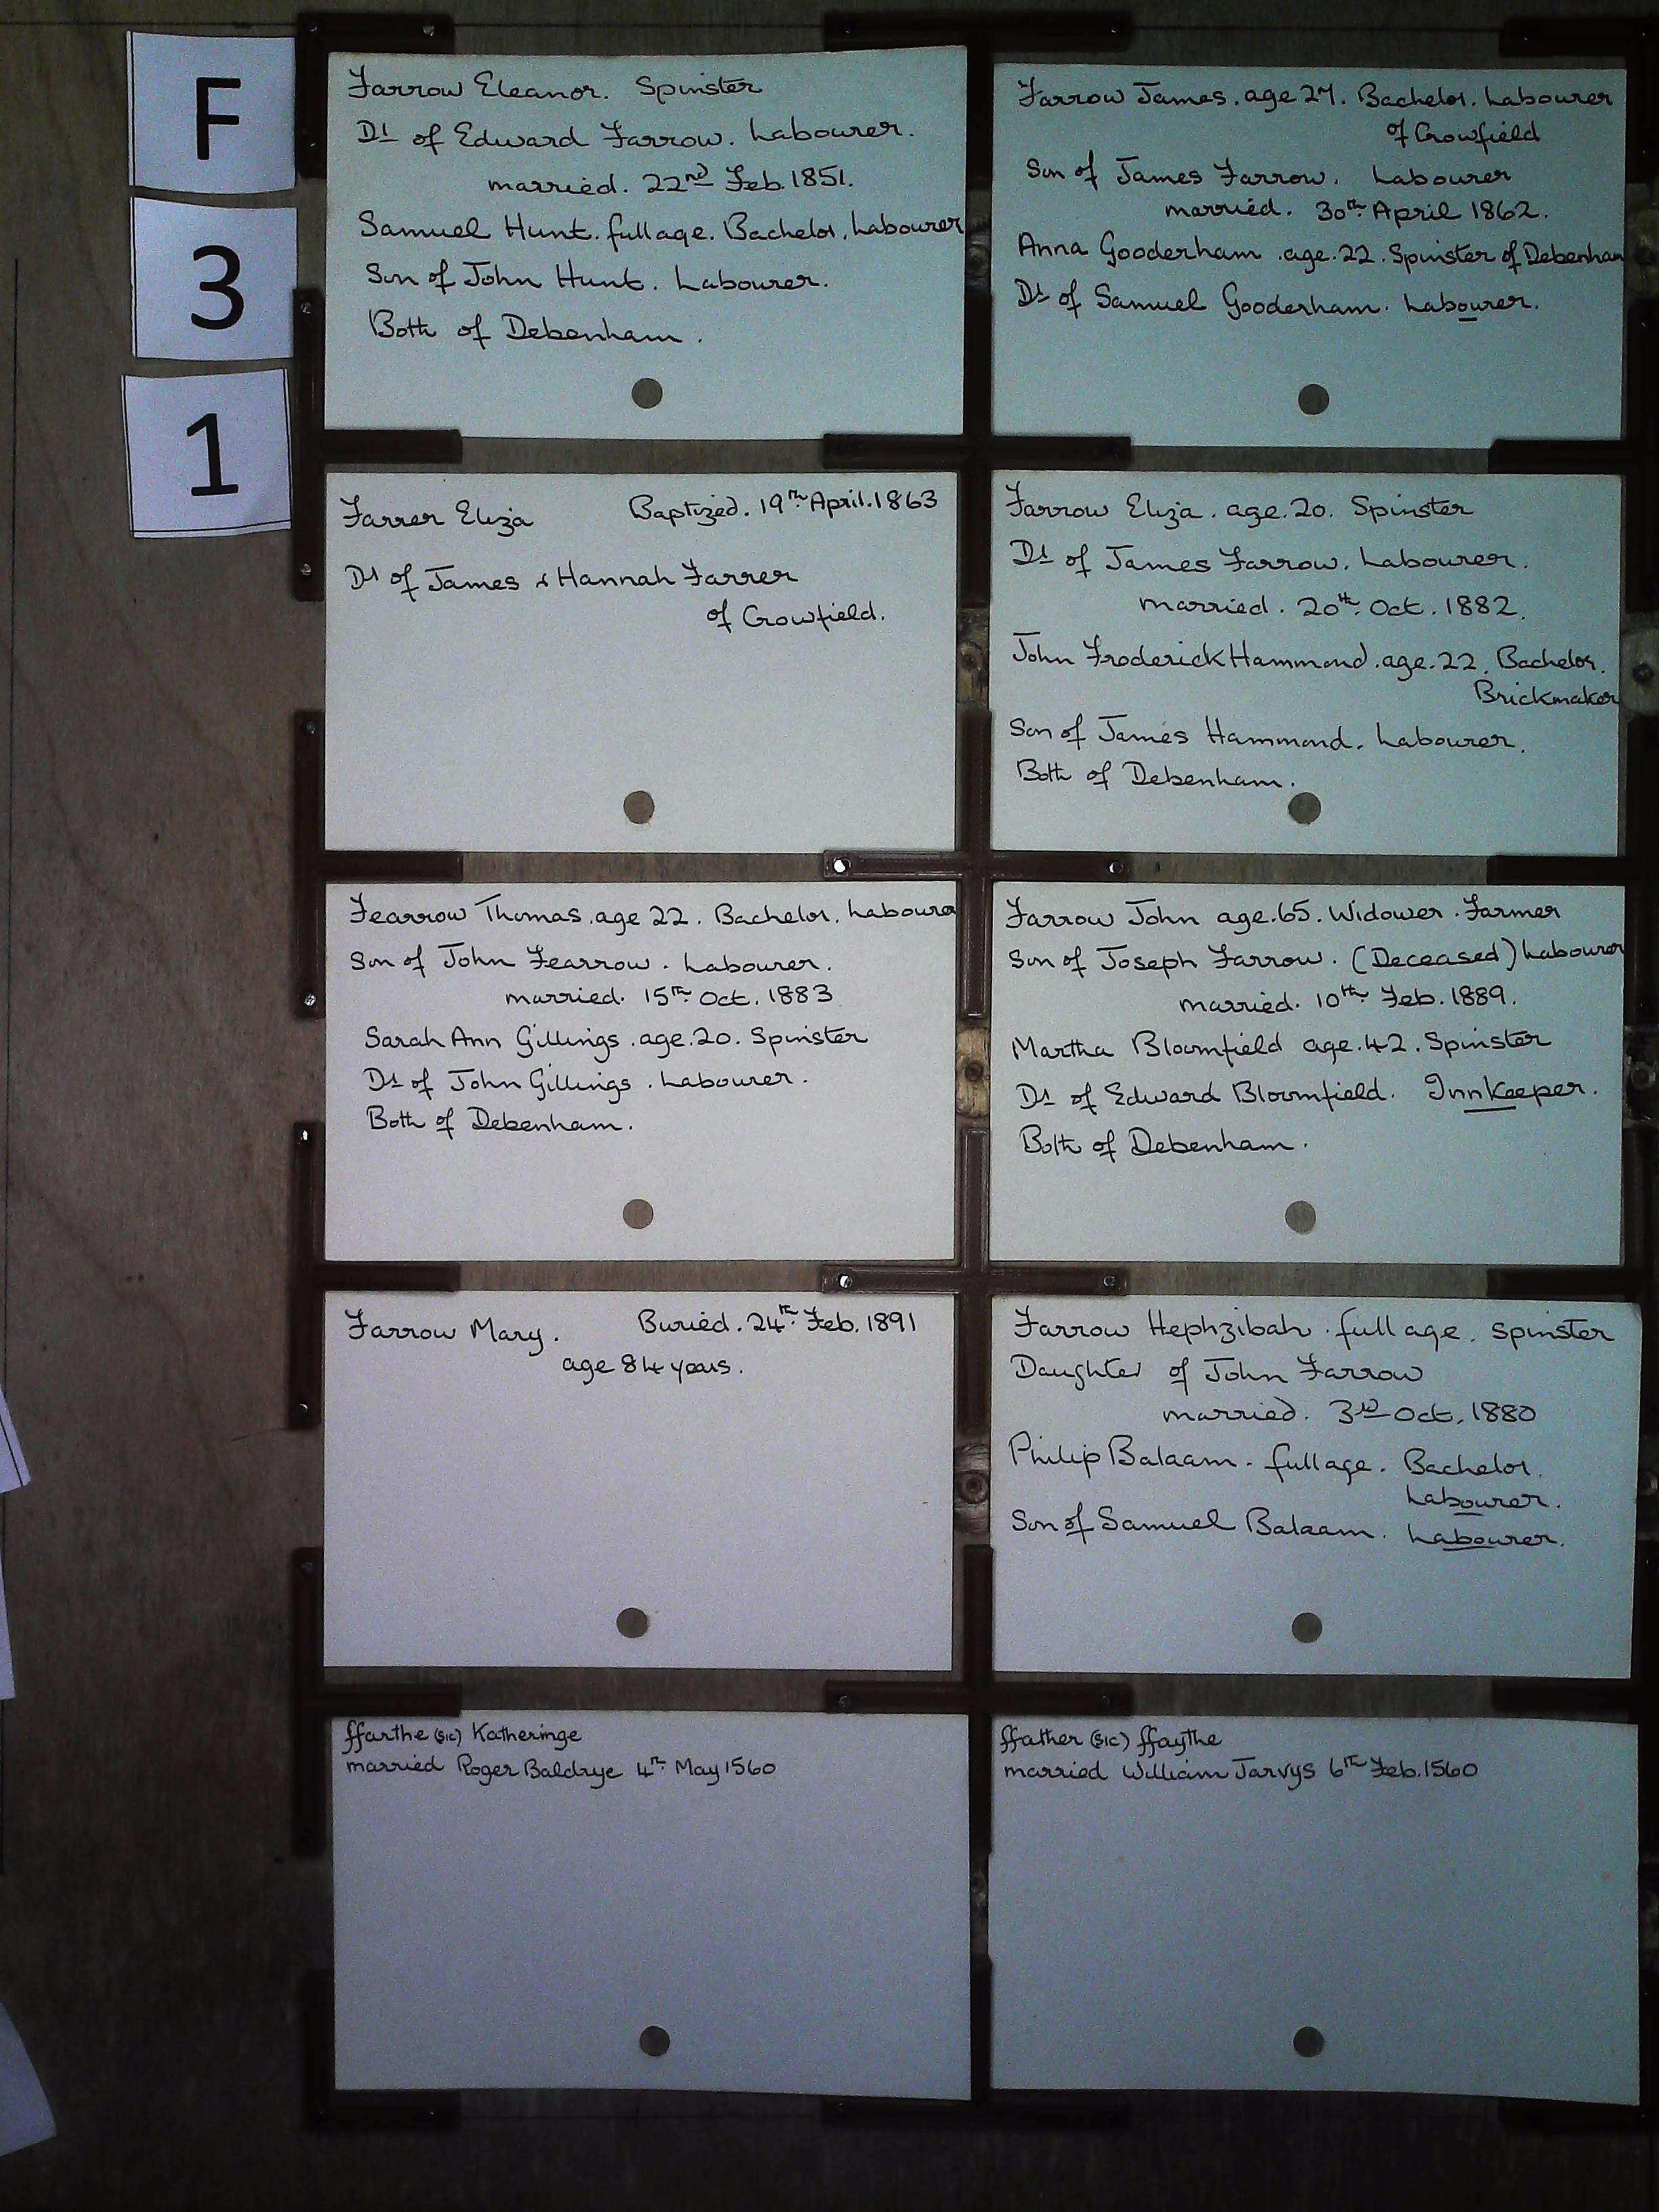 F
3
1
Farrow Eleanor. Spinster
Dt of Edward Farrow. Labourer.
married. 22nd Feb. 1851.
Samuel Hunt. full age. Bachelor. Labourer
Son of John Hunt. Labourer.
Both of Debenham.
Farrow James. age 27. Bachelor. Labourer
of Crowfield
Son of James Farrow. Labourer
married. 30th April 1862.
Anna Gooderham. age. 22. Spinster of Debenham
Dt of Samuel Gooderham. Labourer.
Farrer Eliza Baptized. 19th April. 1863
Dt of James & Hannah Farrer
of Crowfield.
Farrow Eliza. age. 20. Spinster
Dt of James Farrow. Labourer.
married. 20th Oct. 1882.
John Froderick Hammond. age. 22. Bachelor.
Brickmaker
Son of James Hammond. Labourer.
Both of Debenham.
Fearrow Thomas. age 22. Bachelor. Labourer
Son of John Fearrow. Labourer.
married. 15th Oct. 1883
Sarah Ann Gillings. age. 20. Spinster
Dt of John Gillings. Labourer.
Both of Debenham.
Farrow John age. 65. Widower. Farmer
Son of Joseph Farrow. (Deceased) Labourer
married. 10th Feb. 1889.
Martha Bloomfield age. 42. Spinster
Dt of Edward Bloomfield. InnKeeper.
Both of Debenham.
Farrow Mary. Buried. 24th Feb. 1891
age 84 years.
Farrow Hephzibah. full age. Spinster
Daughter of John Farrow
married. 3rd Oct. 1880
Philip Balaam. full age. Bachelor.
Labourer.
Son of Samuel Balaam. Labourer.
ffarthe (sic) Katheringe
married Roger Baldrye 4th May 1560
ffather (sic) ffaythe
married William Jarvys 6th Feb. 1560